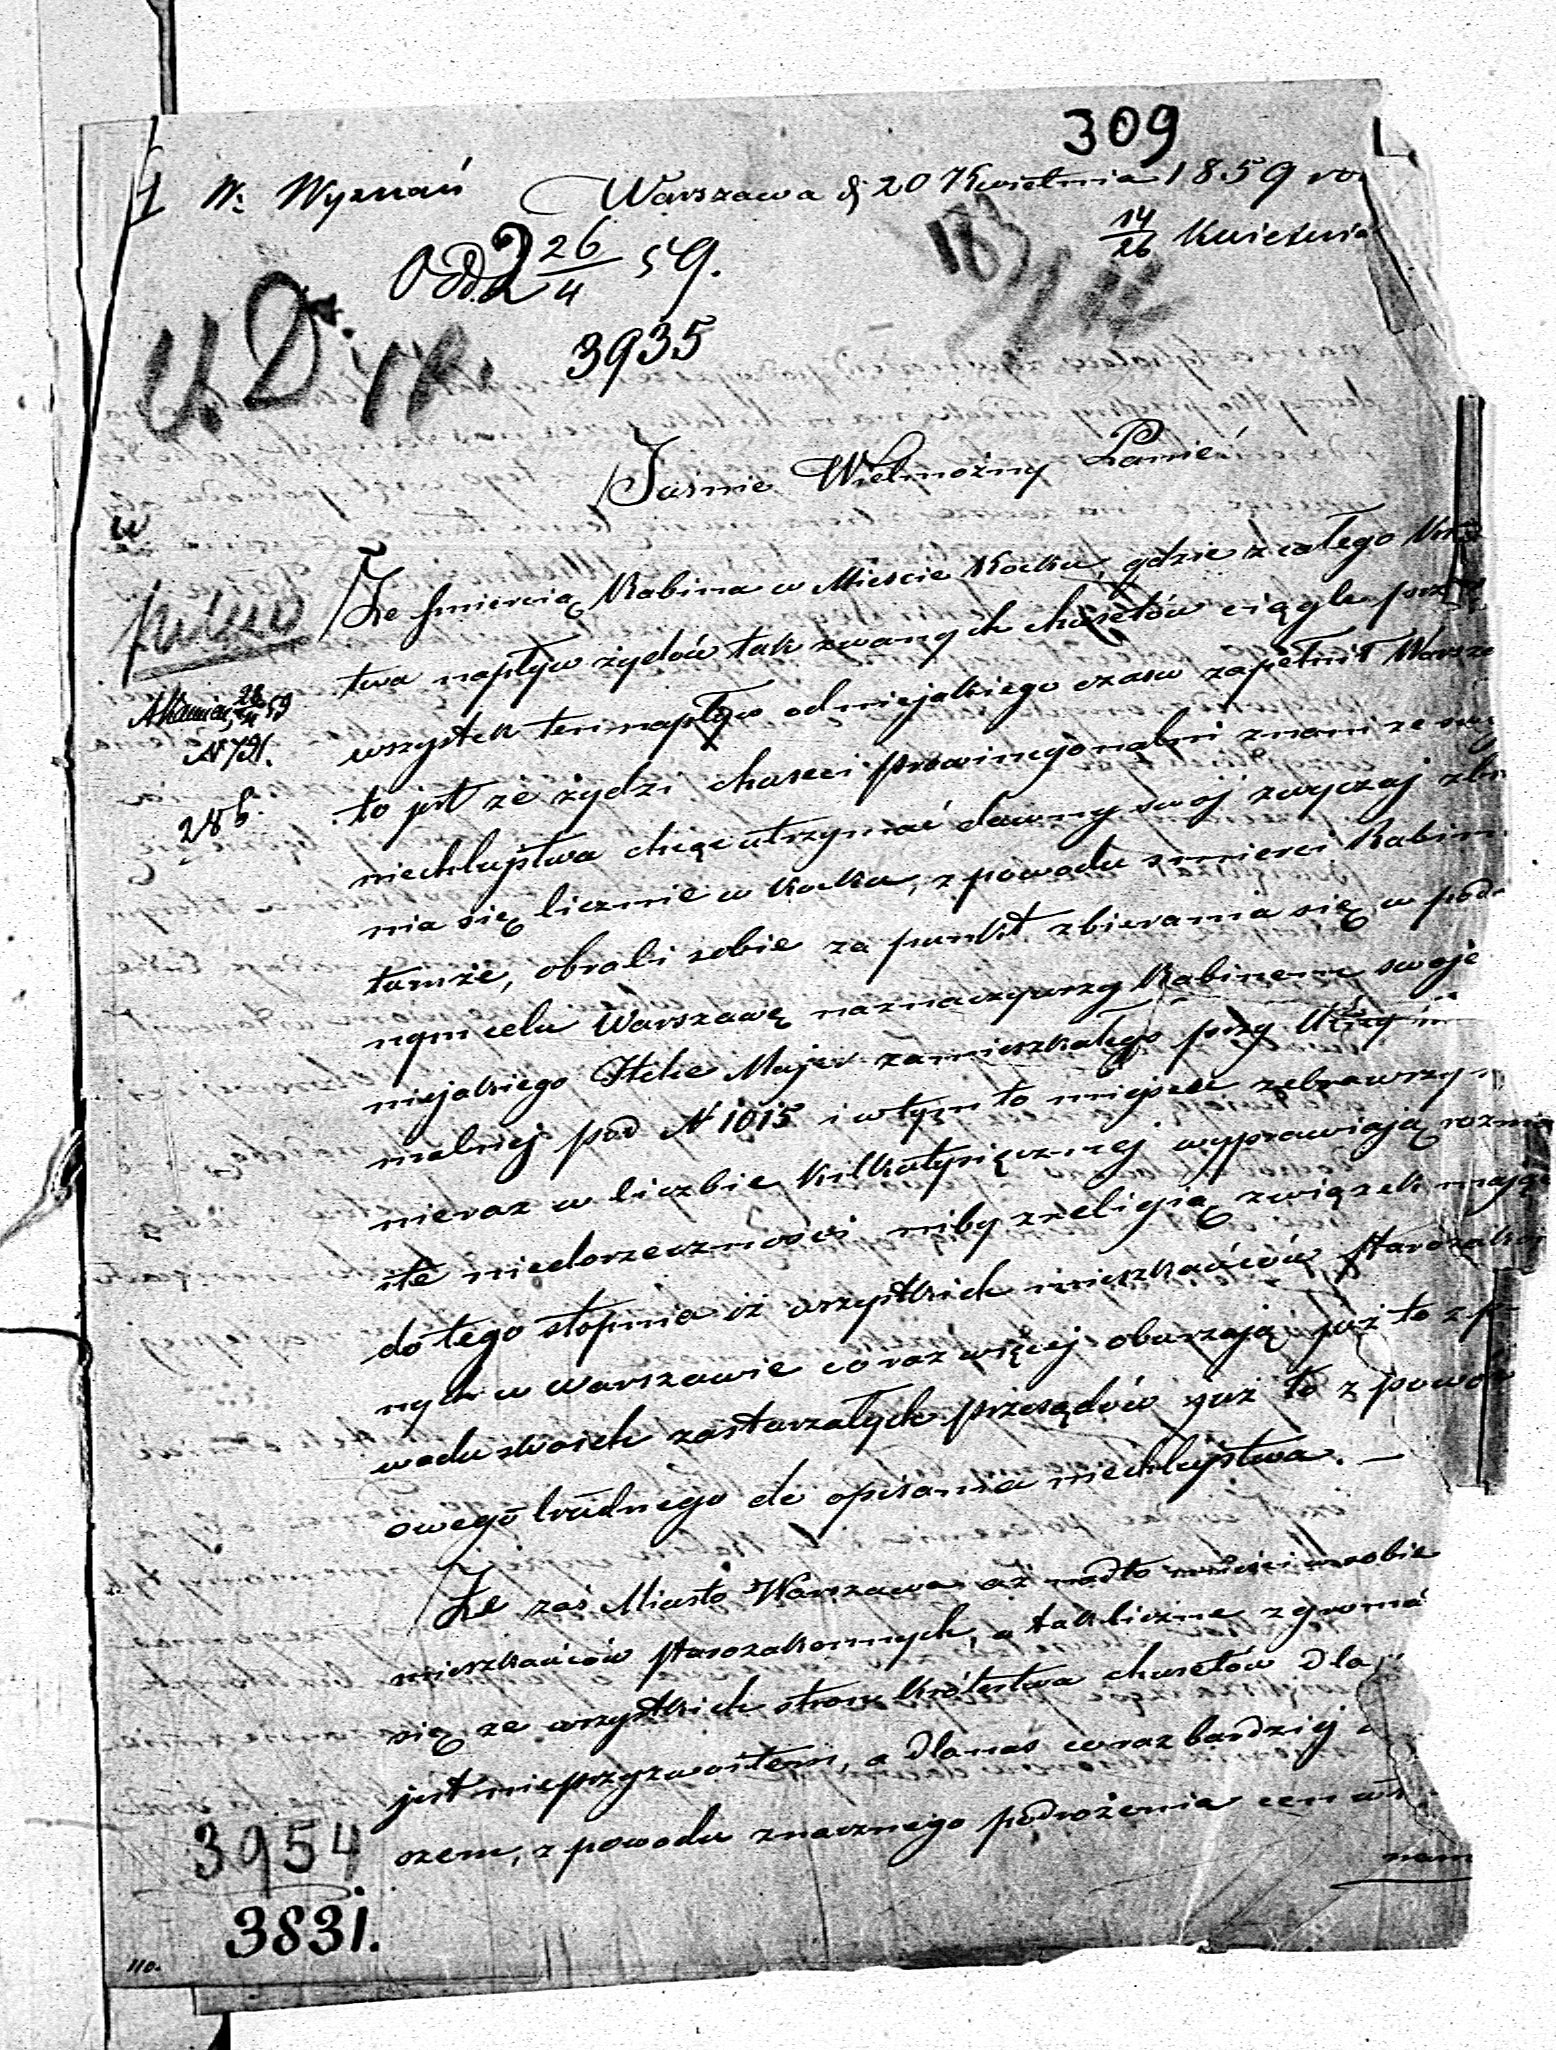 309
W. Wyznań Warszawa d. 20 Kwietnia 1859 ro
14/26 Kwietnia
Odd. 2 26/4 59.
183
3935
Jaśnie Wielmożny Panie!
w
Ze śmiercią Rabina w Mieście Kocku, gdzie z całego Kró
twa napływ żydów tak zwanych chusetów ciągle
wszystek ten napływ od niejakiego czasu zapełnił Warsza
26/4 59
to jest że żydzi chuseci prowincyonalni znani ze swe
niechlujstwa chcąc utrzymać dawny swój zwyczaj zbie
nia się licznie w Kocku, z powodu śmierci Rabina
tamże, obrali sobie za punkt zbierania się w podo
nym celu Warszawę naznaczywszy Rabinem swoje
niejakiego Itche Majer zamieszkałego przy Ulicy
malnej pod N 1015 i w tym to miejscu zebrawszy
nieraz w liczbie kilkutysięcznej wyprawiają rozma
ite niedorzeczności niby z religią związek mające
do tego stopnia iż wszystkich mieszkańców starozakon
nych w Warszawie coraz więcej oburzają już to z p
wodu swoich zastarzałych przesądów już to z powodu
owego trudnego do opisania niechlujstwa. —
Że zaś Miasto Warszawa aż nadto mieści w sobie
mieszkańców starozakonnych, a tak liczne zgroma
się ze wszystkich stron Królestwa chusetów dla
jest nieprzyzwoitem, a dla nas coraz bardziej
szem, z powodu znacznego podrożenia cen
nam
3954
3831.
110.